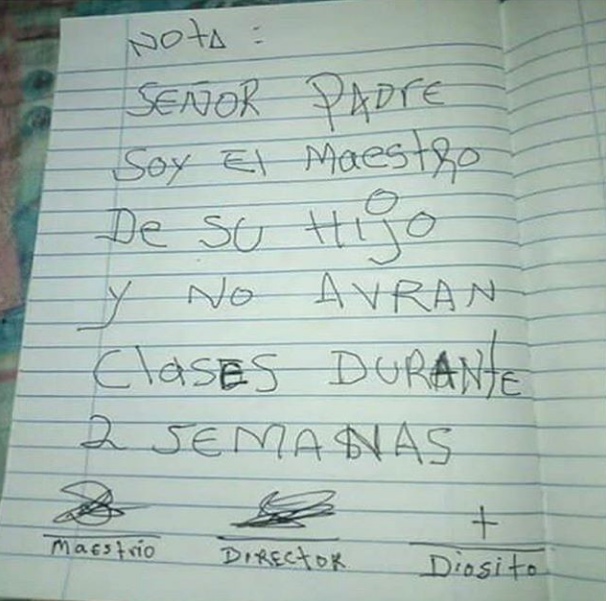 NOTA :
SEÑOR PADrE
Soy El MaestRo
De SU HIjO
y No AVRAN
ClaSES DURANtE
2 SEMANAS
+
Maestrio DIRECTOR Diosito